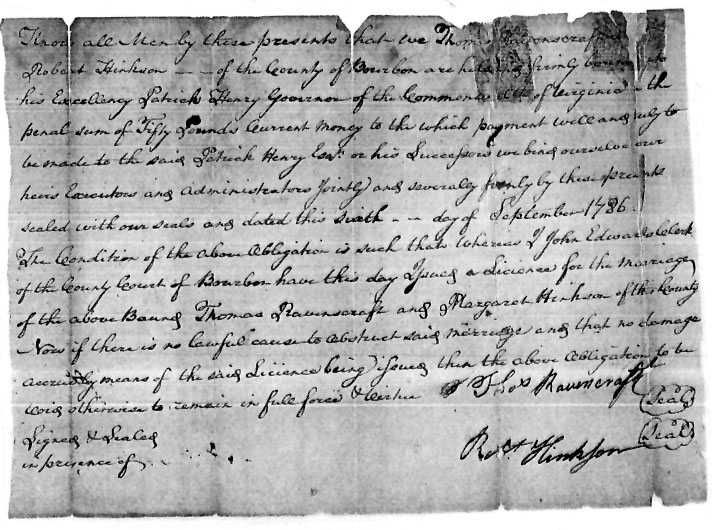 Know all Men by these presents that we Thomas Ravenscraft
Robert Hinkson - - of the County of Bourbon are held and firmly bound unto
his Excellency Patrick Henry Governor of the Commonwealth of Virginia in the
penal sum of Fifty Pounds Current Money to the which payment well and truly to
be made to the said Patrick Henry Esqr. or his Successors we bind ourselves our
heirs Executors and Administrators Jointly and severaly firmly by these presents
sealed with our seals and dated this sixth - - day of September 1786.
The Condition of the above Obligation is such that whereas I John Edwards Clerk
of the County Court of Bourbon have this day Issued a Licience for the Marriage
of the above Bound Thomas Ravenscraft and Margaret Hinkson of this County
Now if there is no lawful cause to obstruct said marriage and that no damage
by means of the said Licience being issued then the above Obligation to be
void otherwise to remain in full force & Virtue Thos Ravenscraft (Seal)
Signed & Sealed
in presence of Robt Hinkson (Seal)